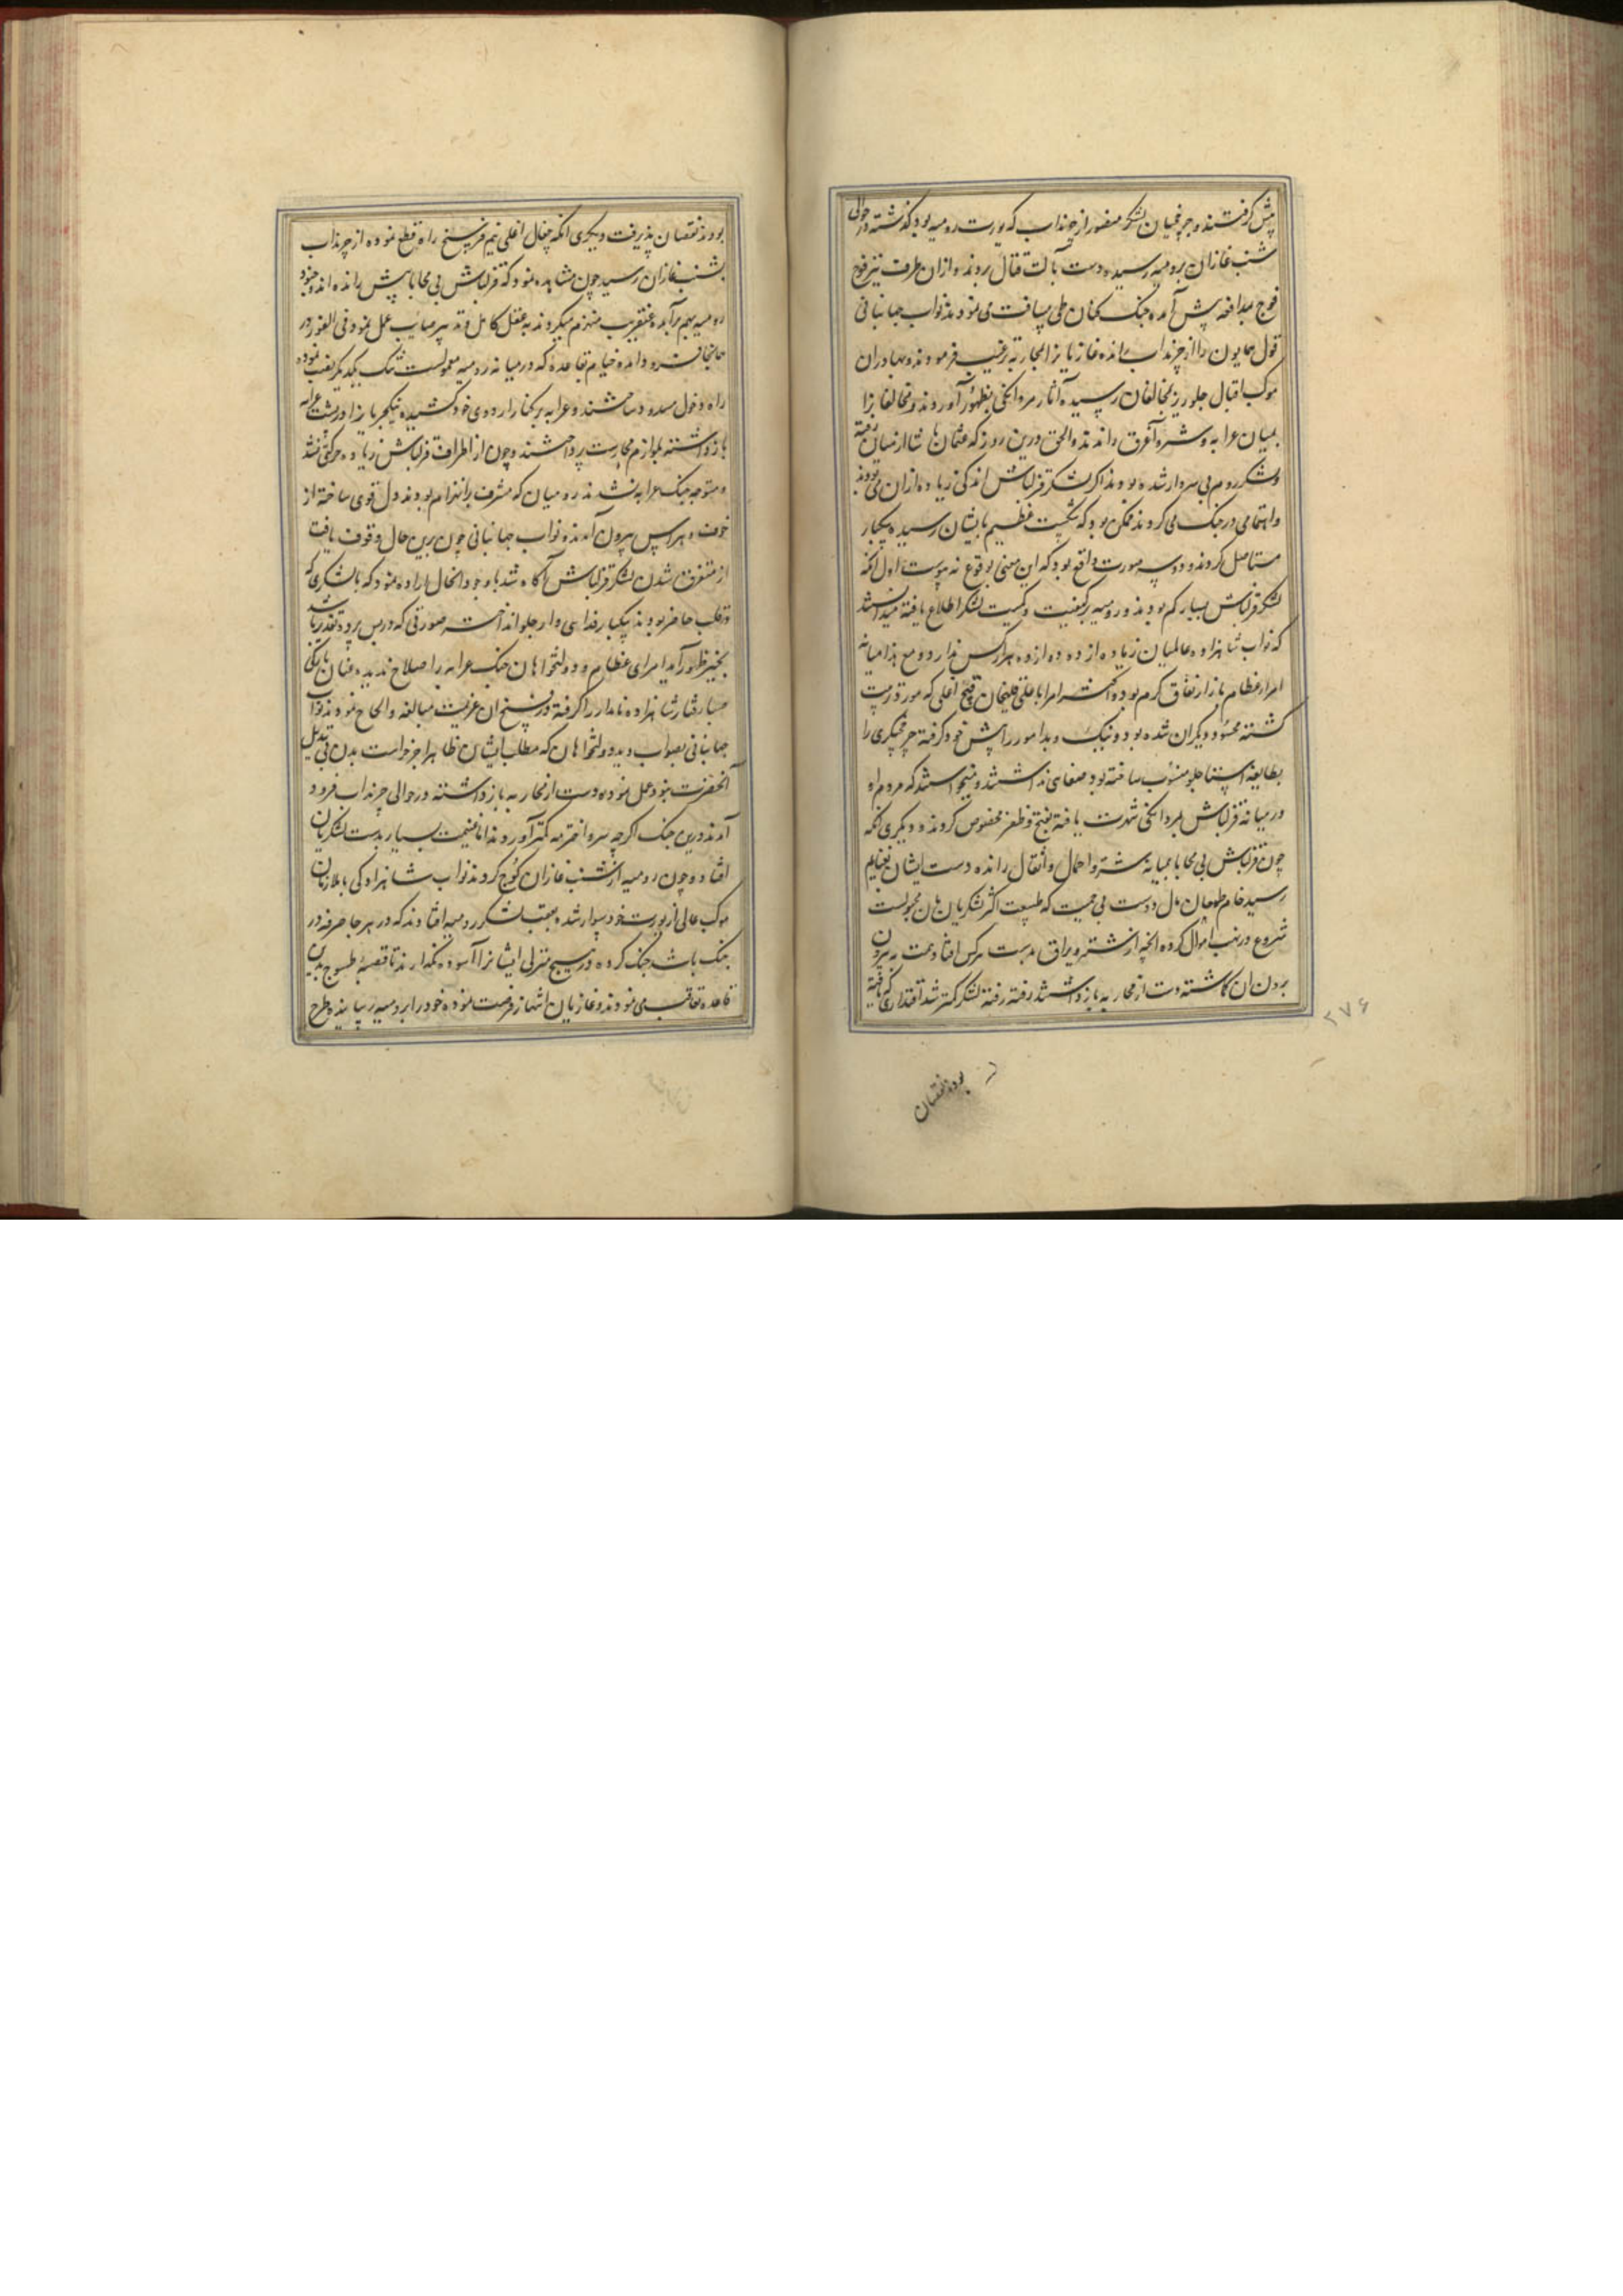 پیش گرفتند و چرخچیان لشکر منصور از چرنداب که یورت رومیه بود گذشته در حوالی
شنب غازان برومیه رسیده دست بآلت قتال بردند و ازان طرف نیز فوج
فوج بمدافعه پیش آمده جنگ کنان طی مسافت می نمودند نواب جهانبانی
قول همایون را از چرنداب رانده غازیانرا بمحاربه ترغیب فرمودند و بهادران
موکب اقبال جلوریز بمخالفان رسیده آثار مردانگی بظهور آوردند و مخالفانرا
بمیان عرابه و شتر و آغرق راندند والحق درین روز که عثمان پاشا از میان رفته
و لشکر روم بی سردار شده بودند اگر لشکر قزلباش اندکی زیاده ازان می بودند
و اهتمامی در جنگ می کردند ممکن بود که شکست عظیم بایشان رسیده یکبار
مستاصل گردند و دو سه صورت واقع بود که این معنی بوقوع نه پیوست اول آنکه
لشکر قزلباش بسیار کم بودند و رومیه بر کیفیت و کمیت لشکر اطلاع یافته میدانستند
که نواب شاهزاده عالمیان زیاده از ده دوازده هزار کس ندارد و مع هذا میانه
امراء عظام بازار نفاق گرم بود و اکثر امرا با علیقلیخان فتح اغلی که مورد تربیت
گشته محسود دیگران شده بود و نیک و بد امور را پیش خود گرفته چرخچیگری را
بطایفه استاجلو منسوب ساخته بود صفایی نداشتند و نمیخواستند که مردم او
در میانه قزلباش بمردانگی شهرت یافته بفتح و ظفر مخصوص گردند و دیگری آنکه
چون قزلباش بی محابا بمیانه شتر و احمال و اثقال رانده دست ایشان بغنایم
رسید خام طمعان مال دوست بی حمیت که طبیعت اکثر لشکریان بآن مجبولست
شروع در نهب اموال کرده آنچه از شتر و یراق بدست هر کس افتاد همت به بیرون
بردن آن گماشته دست از محاربه بازداشتند رفته رفته لشکر کمتر شد اقتداری که یافته
۲۷۶
بودند نقصان
بودند نقصان پذیرفت و دیگری آنکه چغال اغلی نیم فرسخ راه قطع نموده از چرنداب
بشنب غازان رسید چون مشاهده نمود که قزلباش بی محابا پیش رانده اند و جنود
رومیه بهم برآمده عنقریب منهزم میگردند به عقل کامل و تدبیر صائب عمل نمود فی الفور در
همانجا فرود آمده خیام بقاعده که در میانه رومیه معمولست تنگ یکدیگر نصب نموده
راه دخول مسدود ساختند و عرابه بر کنار اردوی خود کشیده ینکچریانرا در پشت عرابه
بازداشته بلوازم محارست پرداختند و چون از اطراف قزلباش زیاده حرکتی نشد
و متوجه جنگ عرابه نشدند رومیان که مشرف بانهزام بودند دل قوی ساخته از
خوف و هراس بیرون آمدند نواب جهانبانی چون برین حال وقوف یافت
از متفرق شدن لشکر قزلباش آگاه شد با وجود آنحال اراده نمود که با لشکری که
در قلب حاضر بودند یکبار فدایی وار جلو انداخته صورتی که در پس پرده تقدیر باشد
بحیز ظهور آید امرای عظام و دولتخواهان جنگ عرابه را صلاح ندیده عنان بارگی
صبا رفتار شاهزاده نامدار را گرفته در فسخ آن عزیمت مبالغه و الحاح نمودند نواب
جهانبانی بصواب دید دولتخواهان که مطلب ایشان ظاهرا جز حراست بدن بی بدیل
آنحضرت نبود عمل نموده دست از محاربه بازداشته در حوالی چرنداب فرود
آمدند درین جنگ اگرچه سر و اخترمه کمتر آوردند اما غنیمت بسیار بدست لشکریان
افتاد و چون رومیه از شنب غازان کوچ کردند نواب شاهزادگی با ملازمان
موکب عالی از یورت خود سوار شده بعقب لشکر رومیه افتادند که در هر جا صرفه در
جنگ باشد جنگ کرده در هیچ منزلی ایشانرا آسوده نگذارند تا قصبه طسوج بدین
قاعده تعاقب می نمودند و غازیان انتهاز فرصت نموده خود را برومیه رسانیده طرح